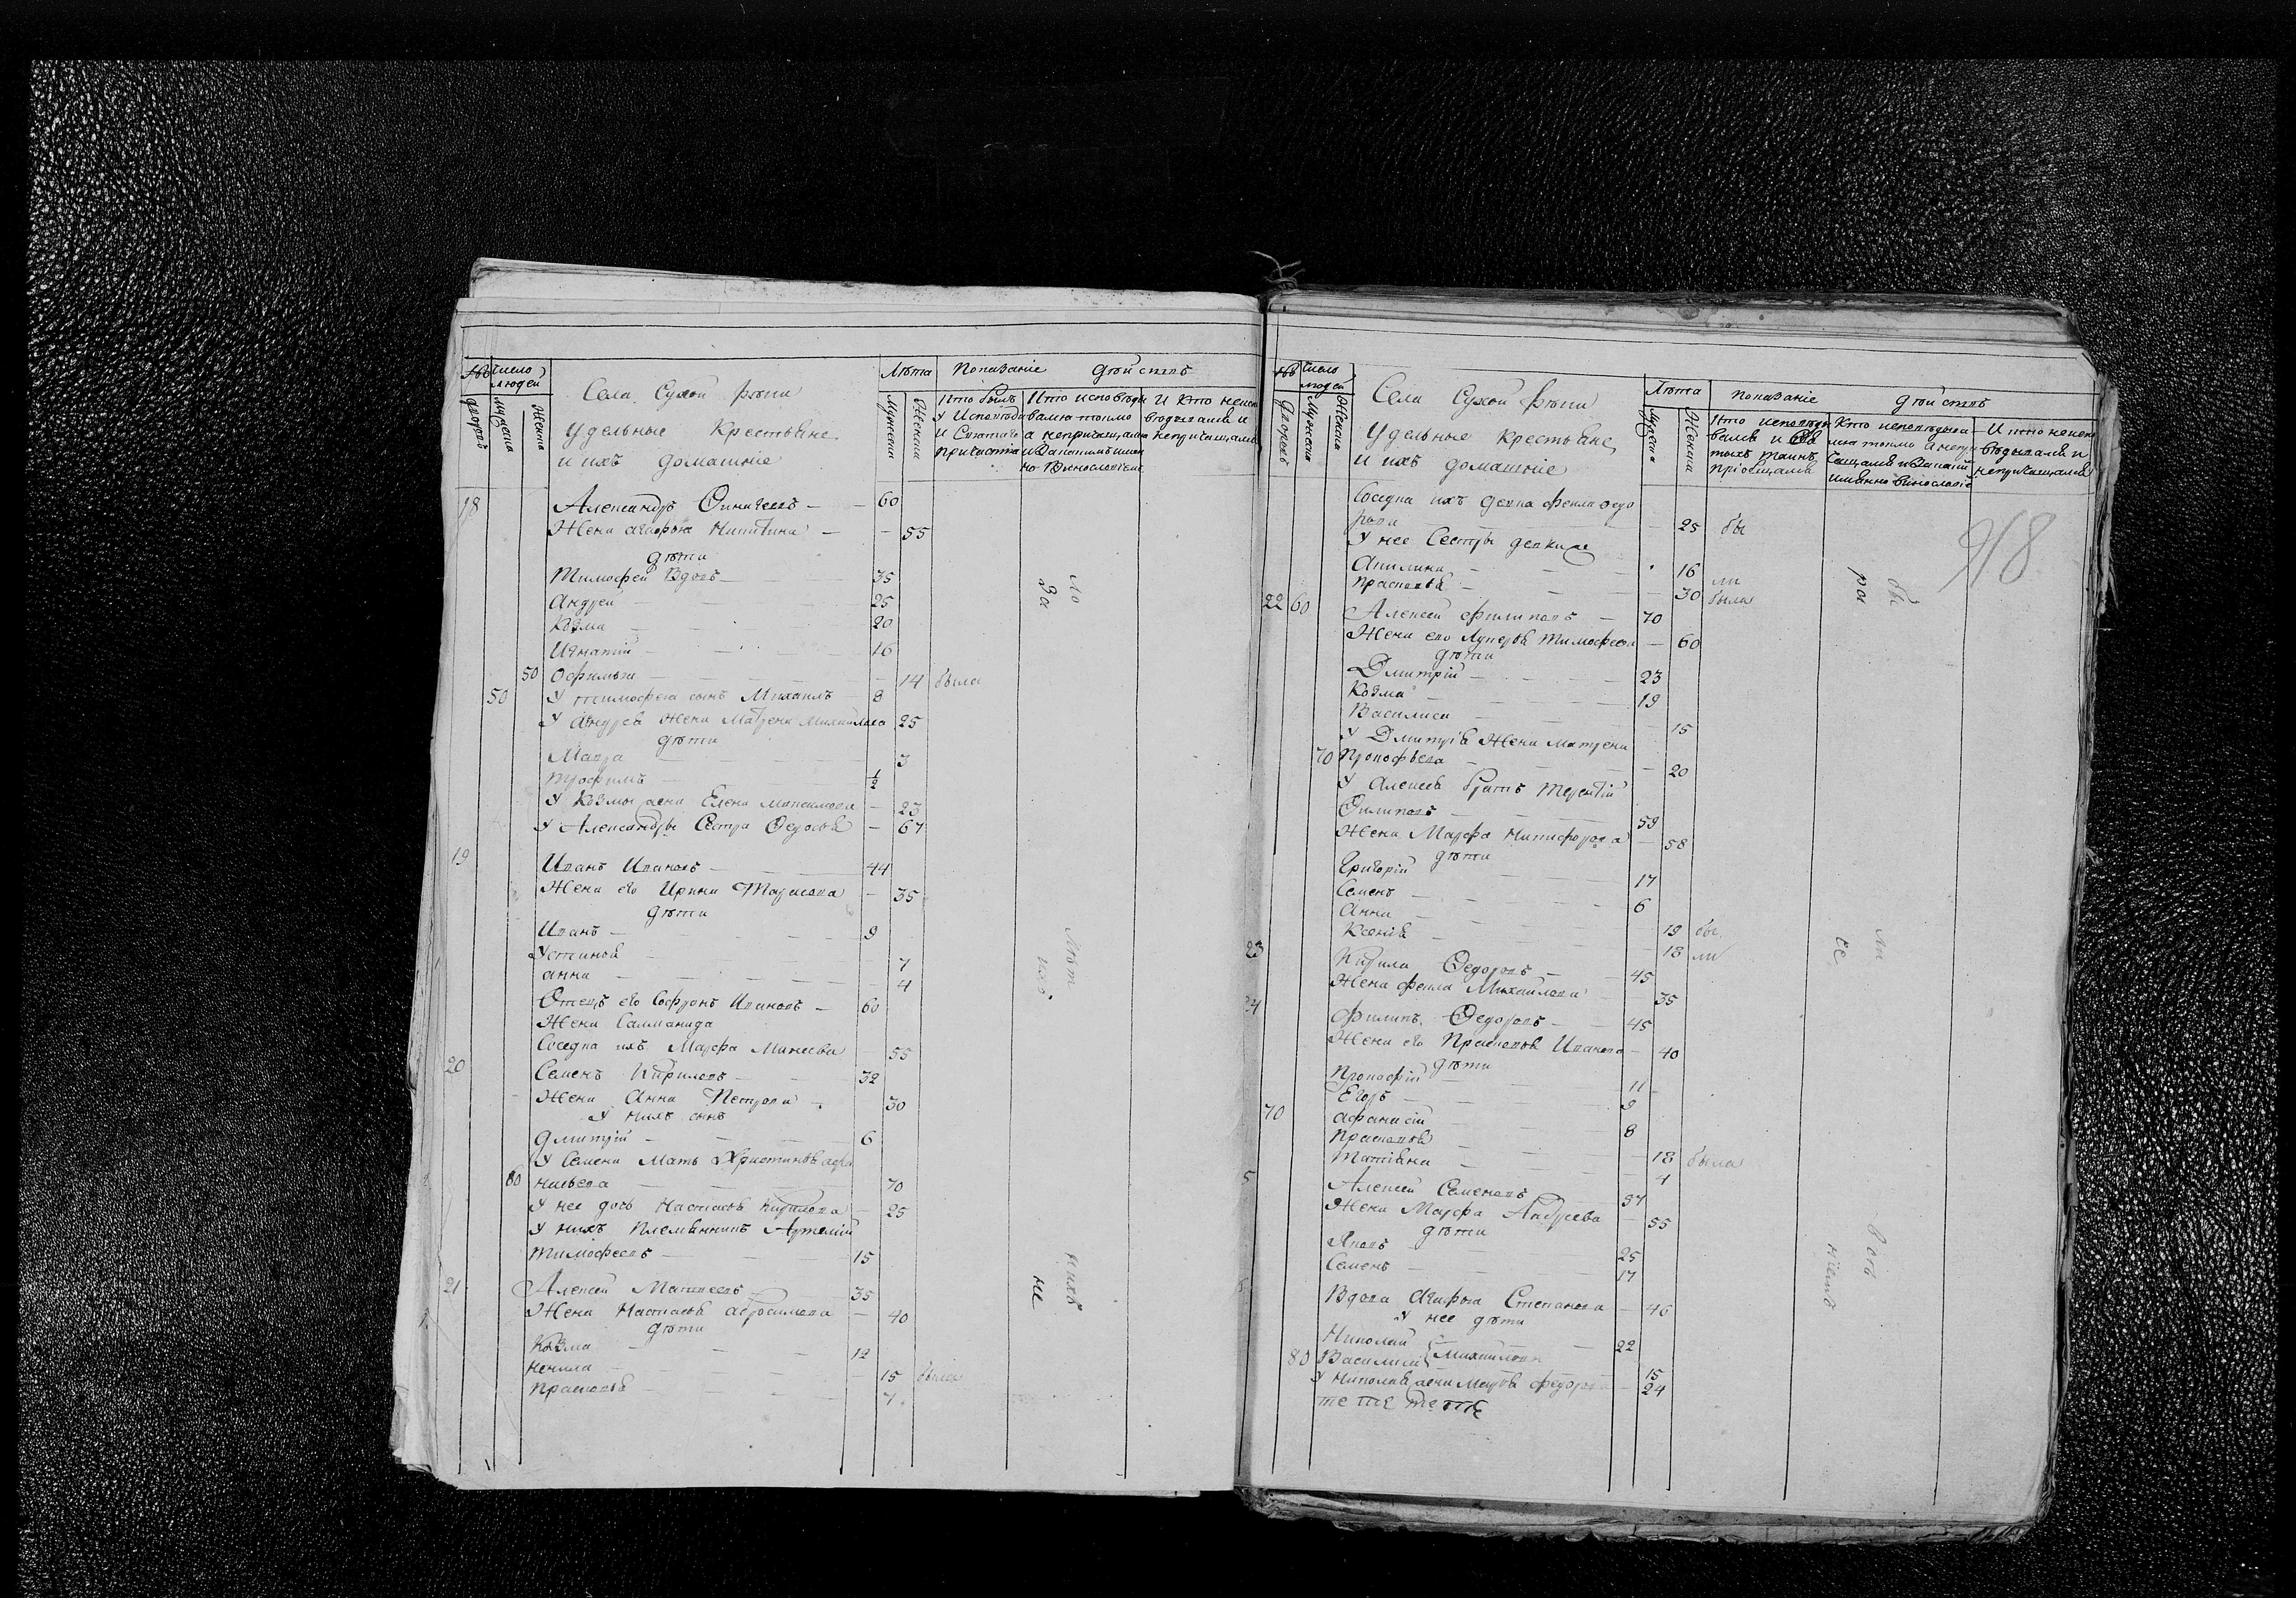 число людей
дворовъ
мужеска
женска
Села Сухой рѣки
Удельные крестьяне
и ихъ домашніе
Лѣта
мужеска
женска
Показаніе дѣйствъ
Кто былъ
у исповѣди
и Святаго
причастія
Кто исповѣды
вался токмо
а непричащался
И кто неиспо
ведывался и
непричащался
18 Александръ — 60
Жена Агафья Никитина — 55
дѣти
Тимофей Вдовъ — 35
Андрей — 25
Козма — 20
Игнатій — 16
50 Офимья — 14 была
50 У тимофея сынъ Михаилъ 8
У Андрея Жена Матрена Михайлова 25
дѣти
Мавра — 3
трофимъ — ½
У Козмы жена Елена Максимова — 23
У Александры Сестра Федосья — 67
19 Иванъ Ивановъ — 44
Жена его Ирина Тарасова — 35
дѣти
Иванъ — 9
Устинья — 7
анна — 4
Отецъ его Софронъ Ивановъ — 60
Жена Саломанида
Соседка ихъ Марфа Минеева 55
20 Семенъ Кириловъ — 32
Жена Анна Петрова — 30
У нихъ сынъ
Дмитрій — 6
У Семена Мать Христинья афа
60 насьева — 70
У нее дочь Настасья Кирилова — 25
У нихъ племянникъ Артемій
тимофеевъ — 15
21 Алексей Матвеевъ — 35
Жена Настасья абросимова — 40
дѣти
Козма — 12
ненила — 15 была
прасковья — 7
число людей
дворовъ
Мужеска
Женска
Села Сухой рѣки
Удельные крестьяне
и ихъ домашніе
Лѣта
Мужеска
Женска
Показаніе дѣйствъ
Кто исповеды
вался и Свя
тыхъ таинъ
пріобщался
Кто исповедыва
лся токмо а непри
чащался
И кто неиспо
вѣдывался и
непричащался
48
Соседка ихъ девка фекла федо
рова — 25 бы
У нее Сестры девки же
Акилина — 16 ли
прасковья — 30 была
22 60 Алексей филиповъ — 70
Жена его Лукерья Тимофеева — 60
дѣти
Дмитрій — 23
Козма — 19
Василиса — 15
У Дмитрія Жена матрена
70 Прокофьева — 20
У алексея братъ терентій
Филиповъ — 59
Жена Марфа Никифорова — 58
дѣти
Григорій — 17
Семенъ — 6
Анна — 19 бы
Ксенія — 18 ли
23 Кирила Федоровъ — 45
Жена фекла Михайлова 35
24 Филипъ Федоровъ — 45
Жена его Прасковья Иванова — 40
дѣти
Прокофій — 11
Егоръ — 9
70 афанасій — 8
прасковья — 18 была
татіяна — 4
5 Алексей Семеновъ — 57
Жена Марфа Андреева — 55
дѣти
Яковъ — 25
Семенъ — 17
Вдова Агафья Степанова — 46
У нее дѣти
Николай
80 Василиса Михайловы 22
15
У Николая жена Марья федорова — 24